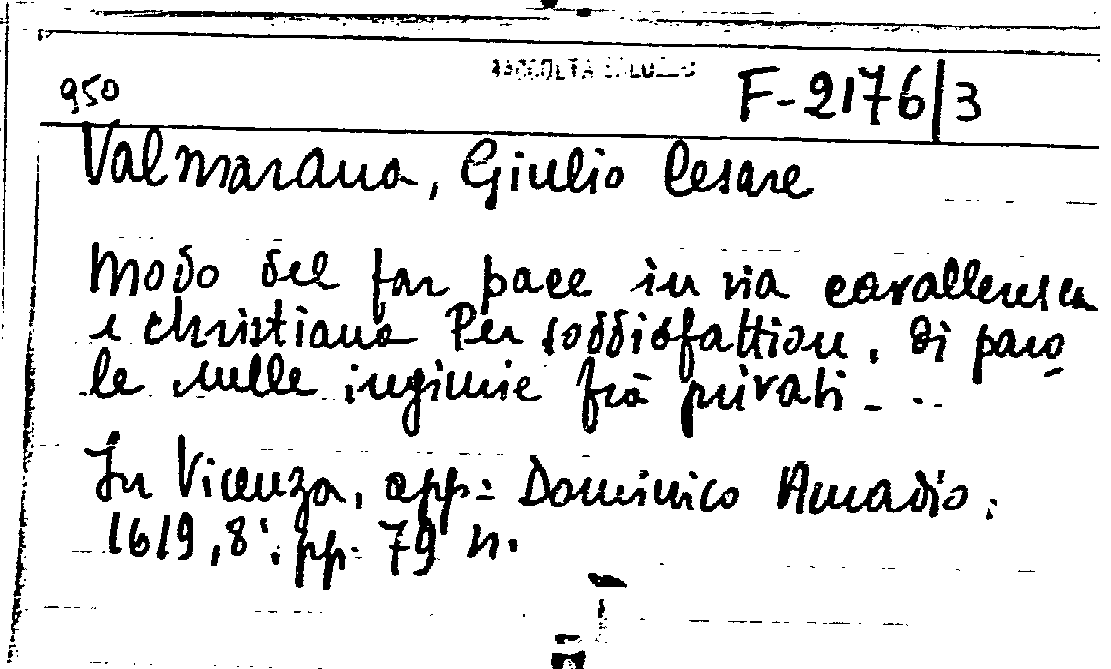 950
F-2176/3
Valmarana, Giulio Cesare
Modo del far pace in via cavalleresca
e christiana Per soddisfattion, di paro
le nelle ingiurie frà privati_ ..
In Vicenza, app: Dominico Amadio.
1619, 8°. pp. 79 n.